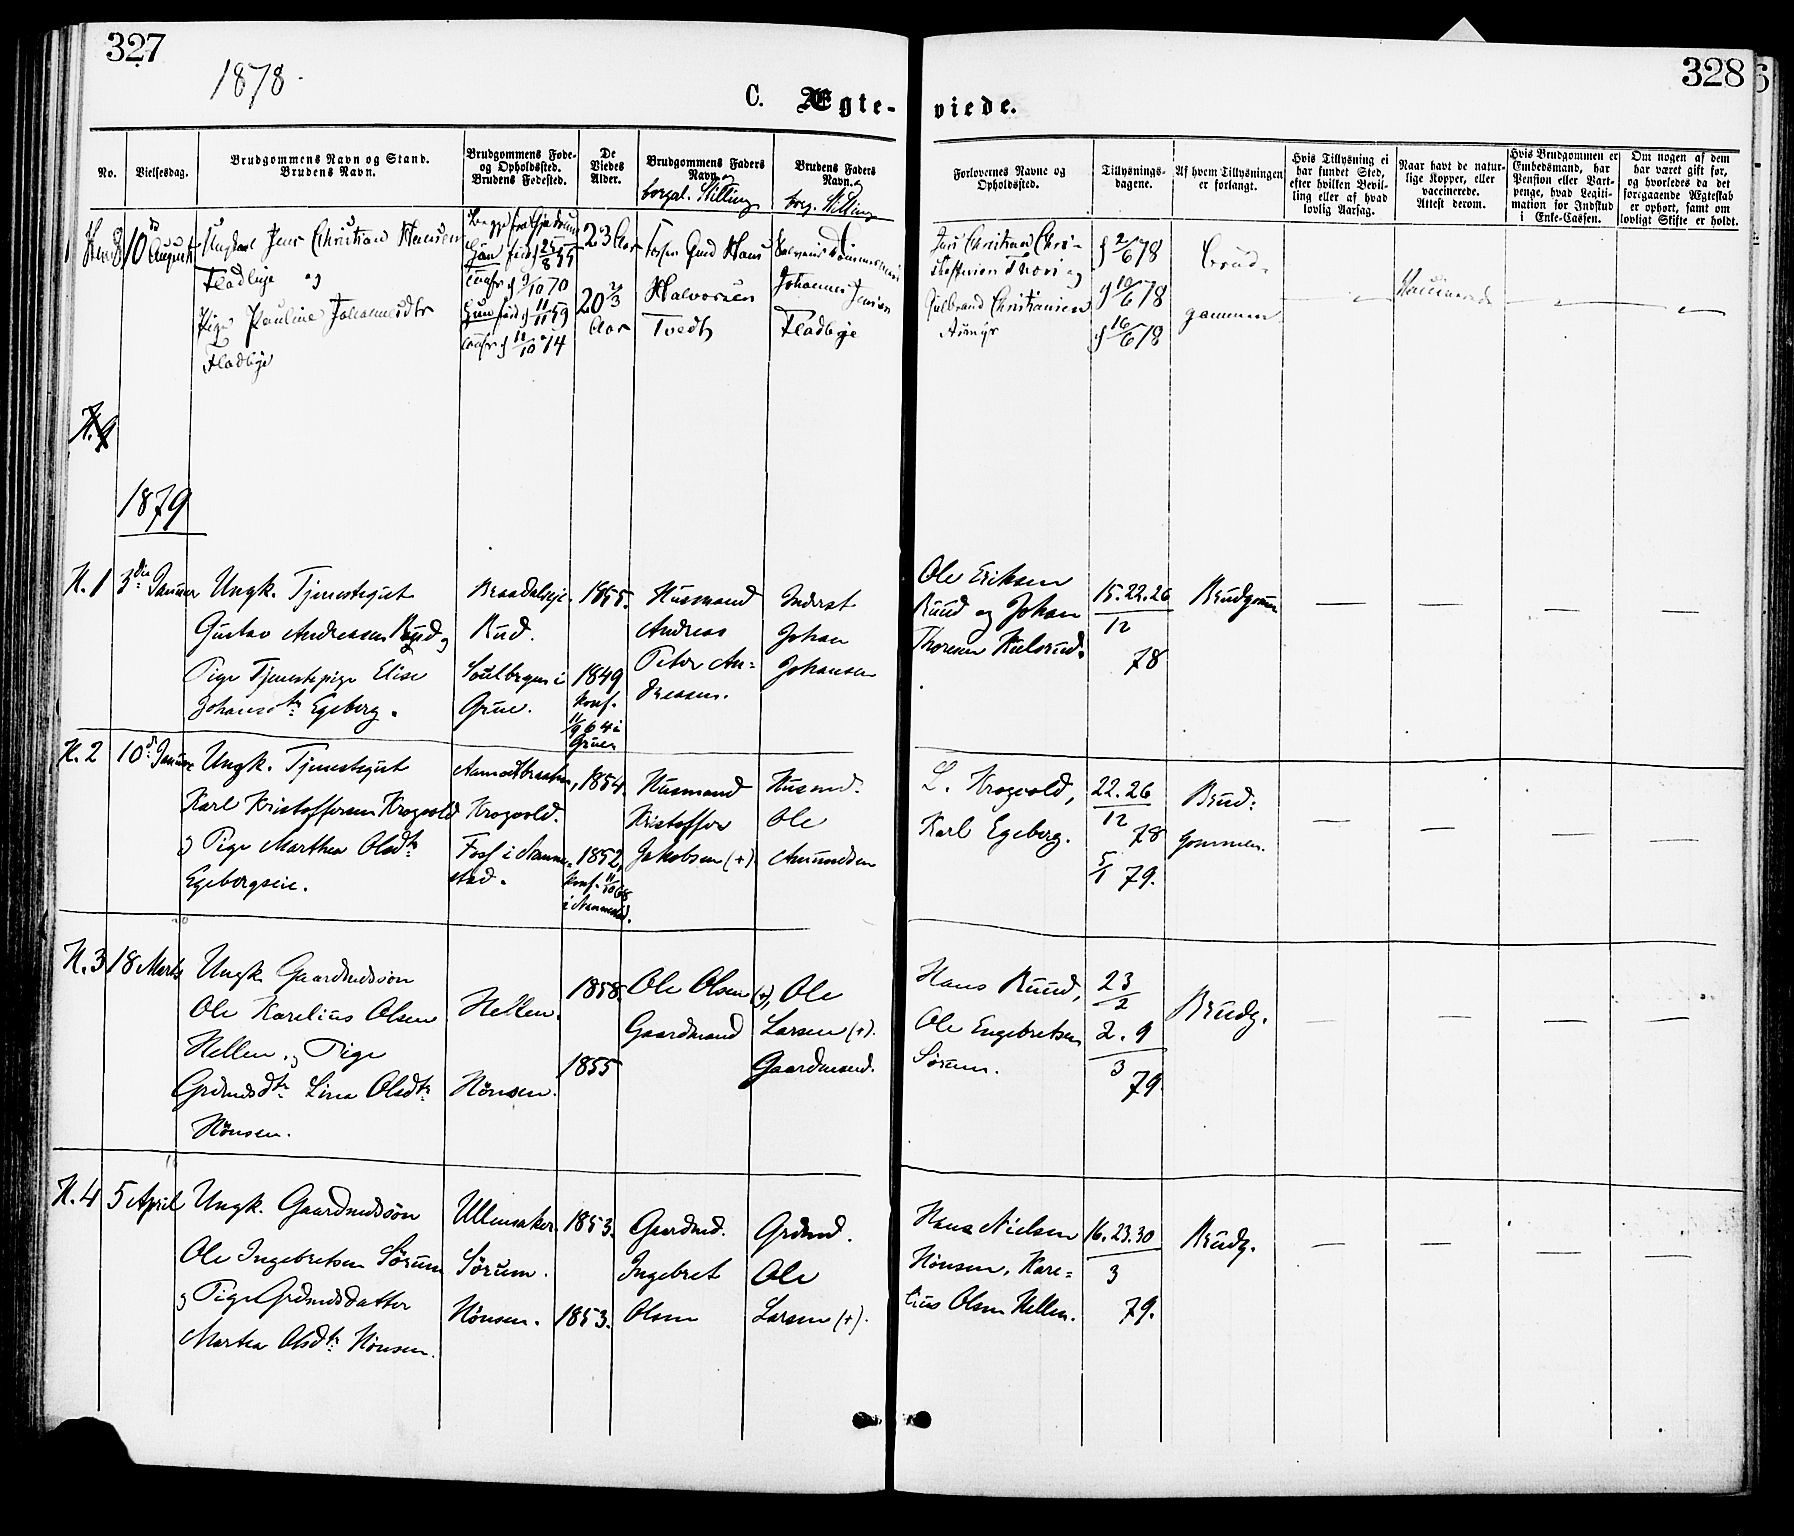 327
1878.
C. Ægte-
viede.
328
No.
Vielsesdag.
Brudgommens Navn og Stand.
Brudens Navn.
Brudgommens Føde-
og Opholdssted.
Brudens Fødested.
De
Viedes
Alder.
Brudgommens Faders
Navn og
borgel. Stilling
Brudens Faders
Navn og
borg. Stilling
Forlovernes Navne og
Opholdssted.
Tillysnings-
dagene.
Af hvem Tillysningen
er forlangt.
Hvis Tillysning ei
har fundet Sted,
efter hvilken Bevil-
ling eller af hvad
lovlig Aarsag.
Naar havt de natur-
lige Kopper, eller
vaccinerede.
Attest derom.
Hvis Brudgommen er
Embedsmand, har
Pension eller Vart-
penge, hvad Legiti-
mation for Indskud
i Enke-Cassen.
Om nogen af dem
har været gift før,
og hvorledes da det
foregaaende Ægteskab
er ophørt, samt om
lovligt Skifte er holdt.
8
10 August
Ungkarl Jens Christian Hansen
Fladbye og
Pige Pauline Johannesdtr
Fladbye
Begge fra Gjerdrum
Han født 25/8 55
conf. 9/10 70
Hun født 11/11 59
conf. 11/10 74
23 Aar
20 2/3
Aar
Hans
Halvorsen
Tvedt
Johannes Jensen
Fladbye
Jens Christian Chri-
stoffersen og
Gulbrand Christiansen
2/6 78
10/6 78
16/6 78
Brud-
gommen
Vaccinerede
N. 9
1879
N. 1
3die Januar
Ungk. Tjenestegut
Gustav Andreassen Rud og
Pige Tjenestepige Elise
Johansdtr Egeberg.
Braadaleie.
Rud.
Soulbergeni
Grue.
1855.
1849
Konf.
11/9 64 i
Grue
Husmand
Andreas
Peter An-
dreasen.
Inderst
Johan
Johansen
Ole Eriksen
Ruud og Johan
Thoresen Kulsrud.
15.22.26
12
78
Brudgommen
N. 2
10de Januar
Ungk. Tjenestegut
Karl Kristoffersen Krogvold
og Pige Marthea Olsdtr
Egebergseie.
Aamodtbraaten,
Krogvold.
Foss i Nanne-
stad.
1854.
1852,
Konf. 11/10 68
i Nannestad.
Husmand
Kristoffer
Jakobsen (+)
Husmd.
Ole
Amundsen
L. Krogvold,
Karl Egeberg.
22.26
12
78
5/1 79.
Brud-
gommen.
N. 3
18 Marts
Ungk. Gaardmdssøn
Ole Karelius Olsen
Hellen. og Pige
Grdmdsdtr Lina Olsdtr
Hønsen.
Hellen.
Hønsen.
1858.
1855
Ole Olsen (+),
Gaardmand
Ole
Larsen (+).
Gaardmand.
Hans Ruud,
Ole Engebretsen
Sørum.
23
2
2. 9
3
79
Brudg.
N. 4
5 April
Ungk. Gaardmdssøn
Ole Ingebretsen Sørum
og Pige Grdmdsdatter
Martea Olsdtr Hønsen.
Ullensaker.
Sørum.
Hønsen.
1853.
1853.
Gaardmd.
Ingebret
Olsen
Grdmd.
Ole
Larsen (+).
Hans Nielsen
Hønsen, Kare-
lius Olsen Hellen.
16.23.30
3
79.
Brudg.